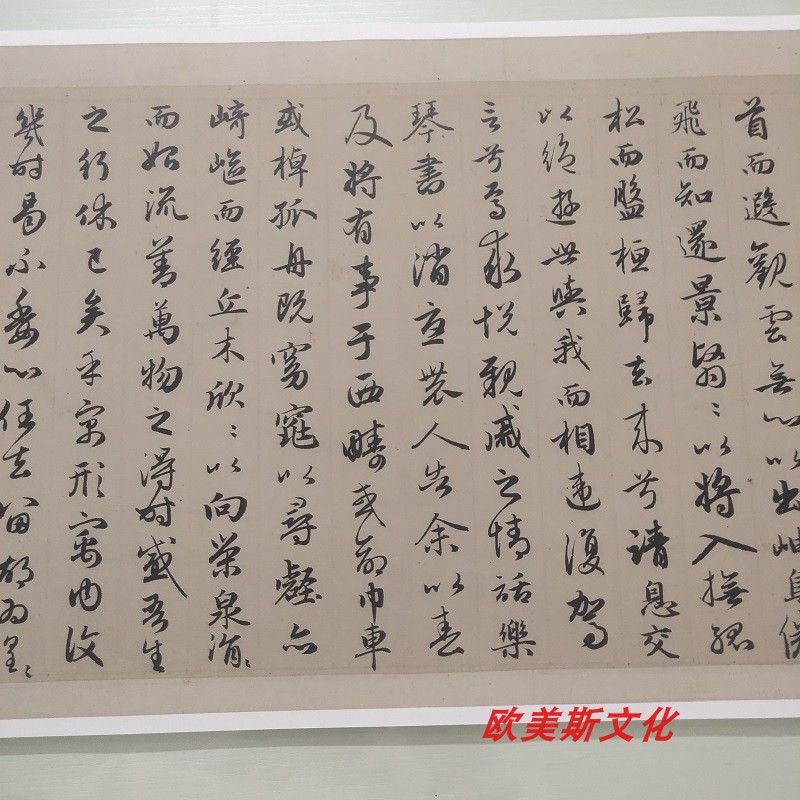 首而遐觀雲無心以出岫鳥倦
飛而知還景翳〻以將入撫孤
松而盤桓歸去來兮請息交
以絕遊世與我而相違復駕
言兮焉求悅親戚之情話樂
琴書以消憂農人告余以春
及將有事于西疇或命巾車
或棹孤舟既窈窕以尋壑亦
崎嶇而經丘木欣〻以向榮泉涓〻
而始流善萬物之得時感吾生
之行休已矣乎寓形寓内復
幾時曷不委心任去留胡為遑〻
欧美斯文化